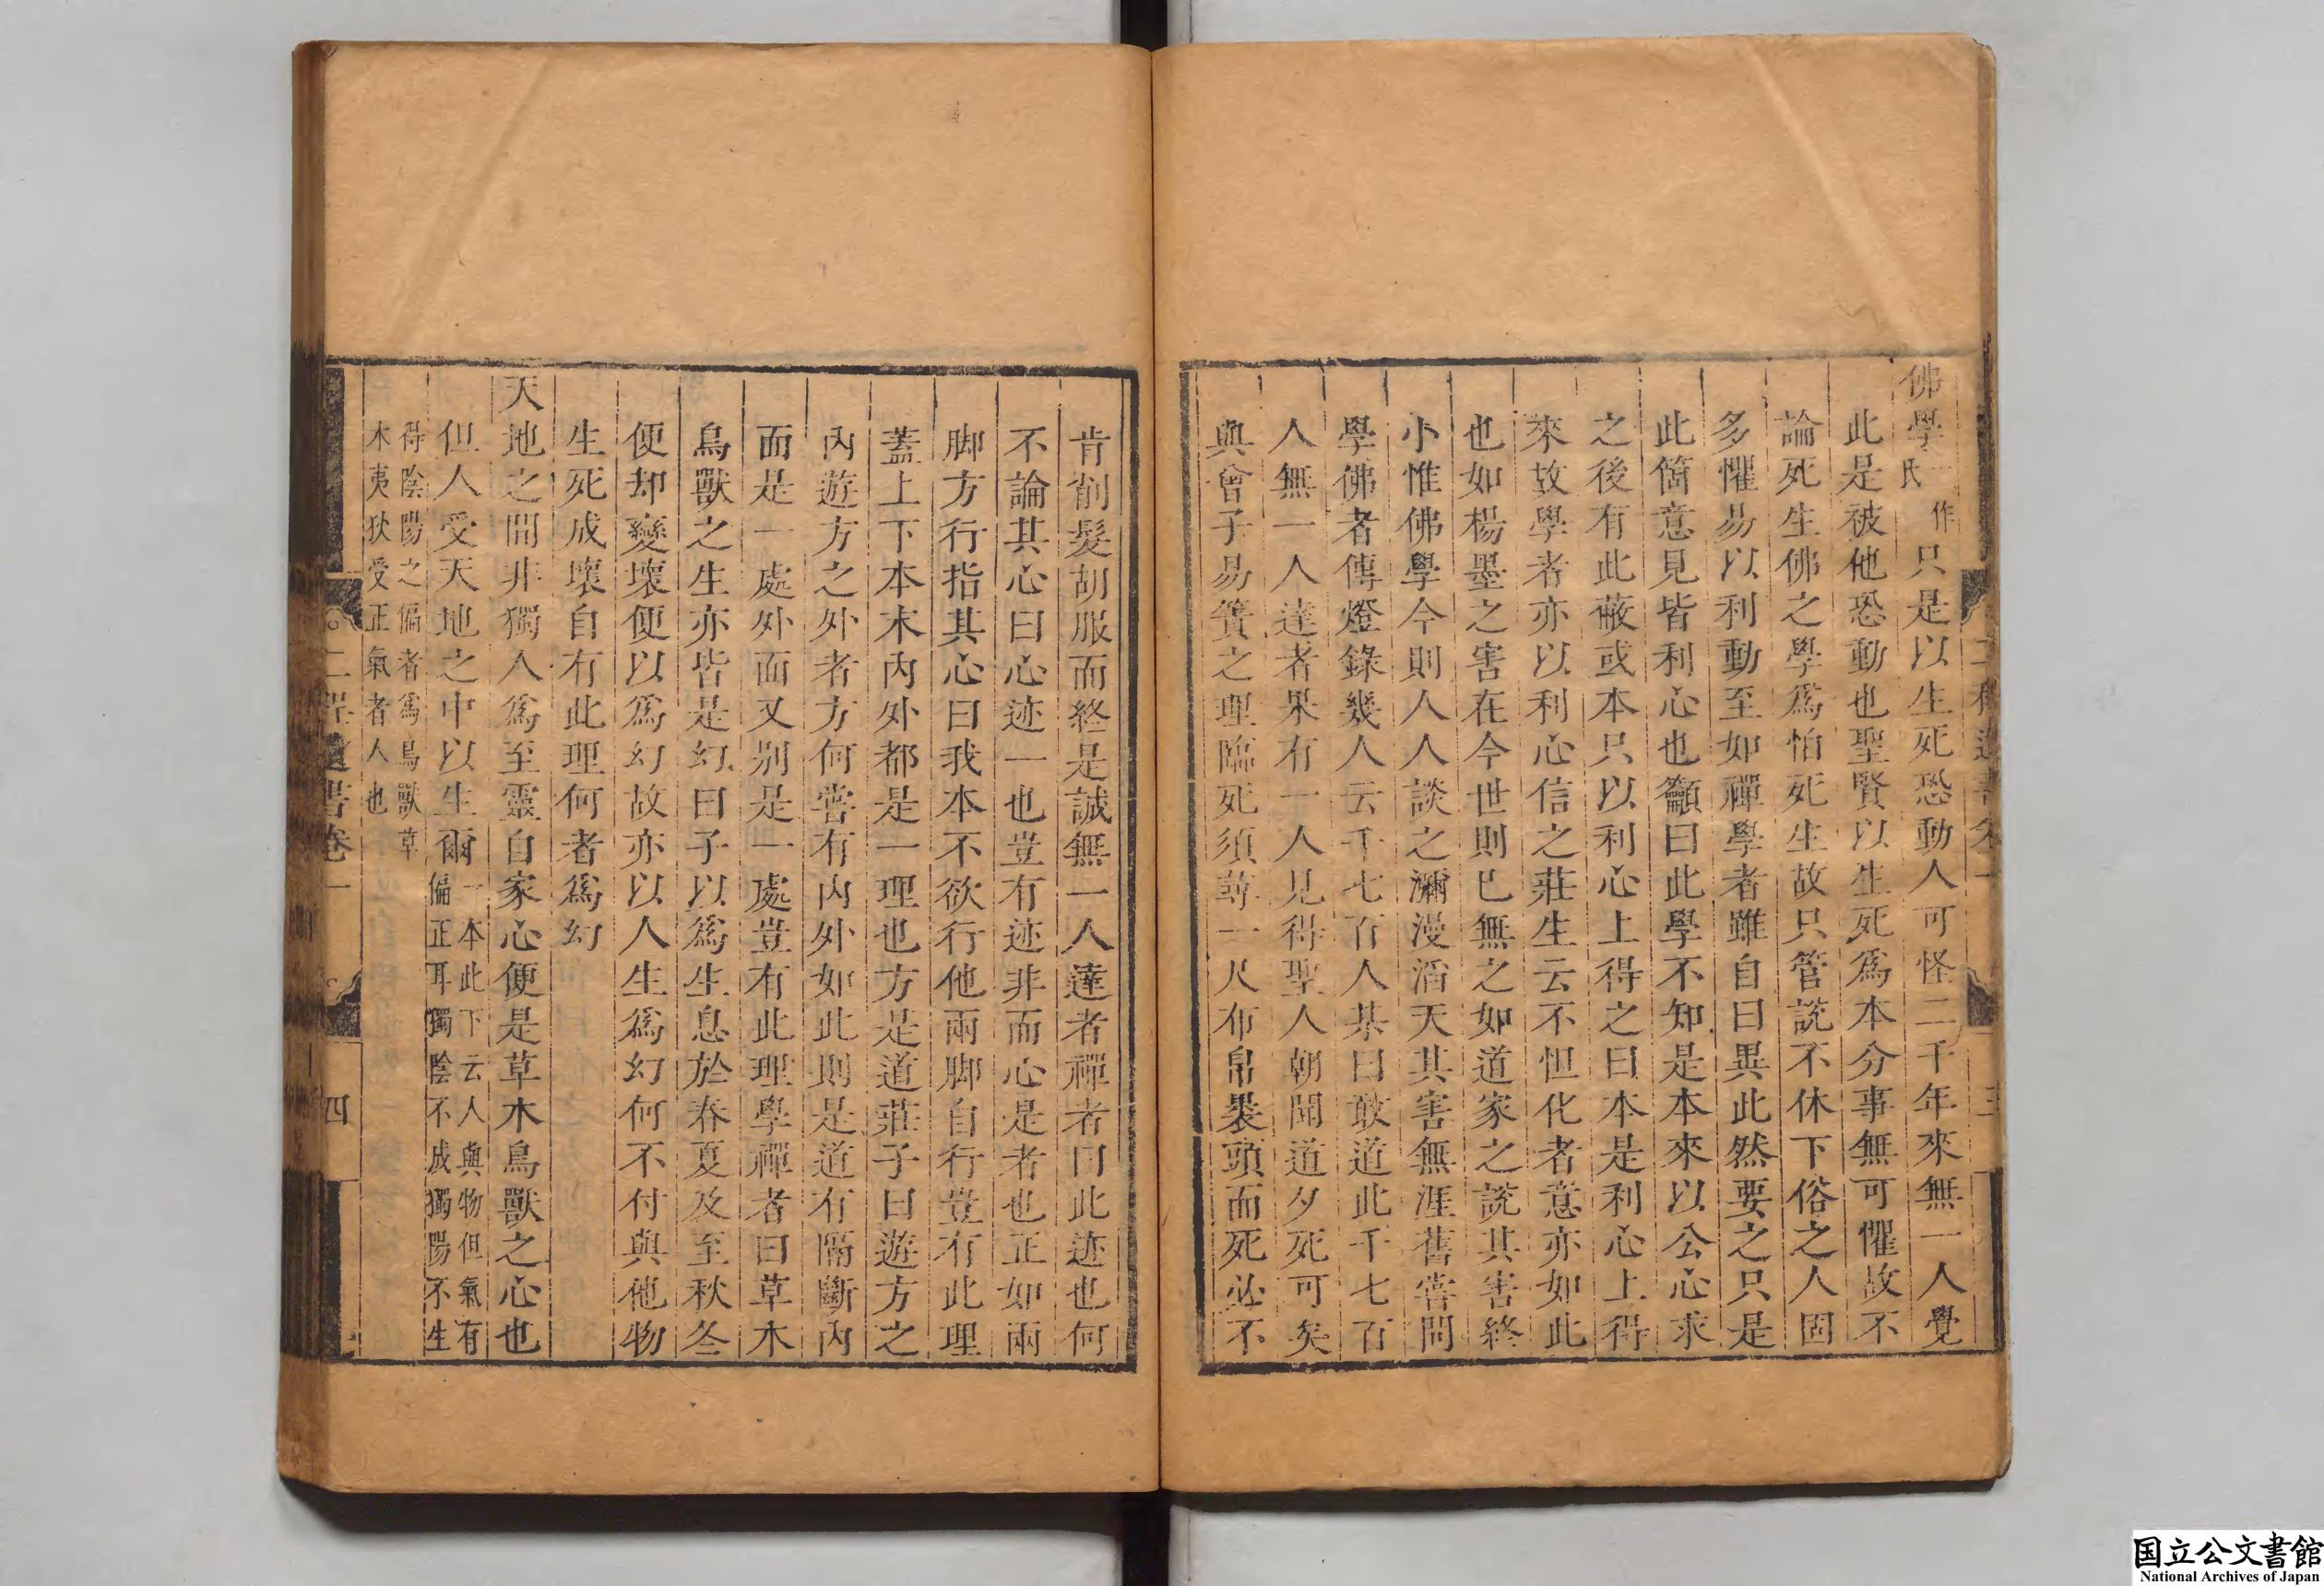 佛學一作氏只是以生死恐動人可怪二千年來無一人覺
此是被他恐動也聖賢以生死爲本分事無可懼故不
論死生佛之學爲怕死生故只管說不休下俗之人固
多懼易以利動至如禪學者雖自曰異此然要之只是
此箇意見皆利心也籲曰此學不知是本來以公心求
之後有此蔽或本只以利心上得之曰本是利心上得
來故學者亦以利心信之莊生云不怛化者意亦如此
也如楊墨之害在今世則已無之如道家之說其害終
小惟佛學今則人人談之瀰漫滔天其害無涯舊嘗問
學佛者傳燈錄幾人云千七百人某曰敢道此千七百
人無一人達者果有一人見得聖人朝聞道夕死可矣
與曾子易簀之理臨死須尋一尺布帛裹頭而死必不
肯削髮胡服而終是誠無一人達者禪者曰此迹也何
不論其心曰心迹一也豈有迹非而心是者也正如兩
脚方行指其心曰我本不欲行他兩脚自行豈有此理
蓋上下本末內外都是一理也方是道莊子曰遊方之
內遊方之外者方何嘗有內外如此則是道有隔斷內
面是一處外面又別是一處豈有此理學禪者曰草木
鳥獸之生亦皆是幻曰子以爲生息於春夏及至秋冬
便却變壞便以爲幻故亦以人生爲幻何不付與他物
生死成壞自有此理何者爲幻
天地之間非獨人爲至靈自家心便是草木鳥獸之心也
但人受天地之中以生爾一本此下云人與物但氣有
偏正耳獨陰不成獨陽不生
得陰陽之偏者爲鳥獸草
木夷狄受正氣者人也
二程遺書卷一
四
国立公文書館
National Archives of Japan